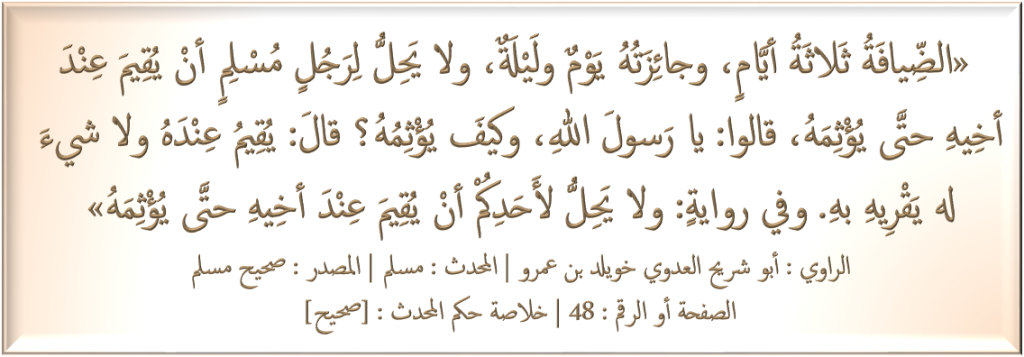 «الضِّيافَةُ ثَلاثَةُ أيَّامٍ، وجائِزَتُهُ يَوْمٌ ولَيْلَةٌ، ولا يَحِلُّ لِرَجُلٍ مُسْلِمٍ أنْ يُقِيمَ عِنْدَ
أخِيهِ حتَّى يُؤْثِمَهُ، قالوا: يا رَسولَ اللهِ، وكيفَ يُؤْثِمُهُ؟ قالَ: يُقِيمُ عِنْدَهُ ولا شيءَ
له يَقْرِيهِ بهِ. وفي روايةٍ: ولا يَحِلُّ لأَحَدِكُمْ أنْ يُقِيمَ عِنْدَ أخِيهِ حتَّى يُؤْثِمَهُ»
الراوي : أبو شريح العدوي خويلد بن عمرو | المحدث : مسلم | المصدر : صحيح مسلم
الصفحة أو الرقم : 48 | خلاصة حكم المحدث : [صحيح]